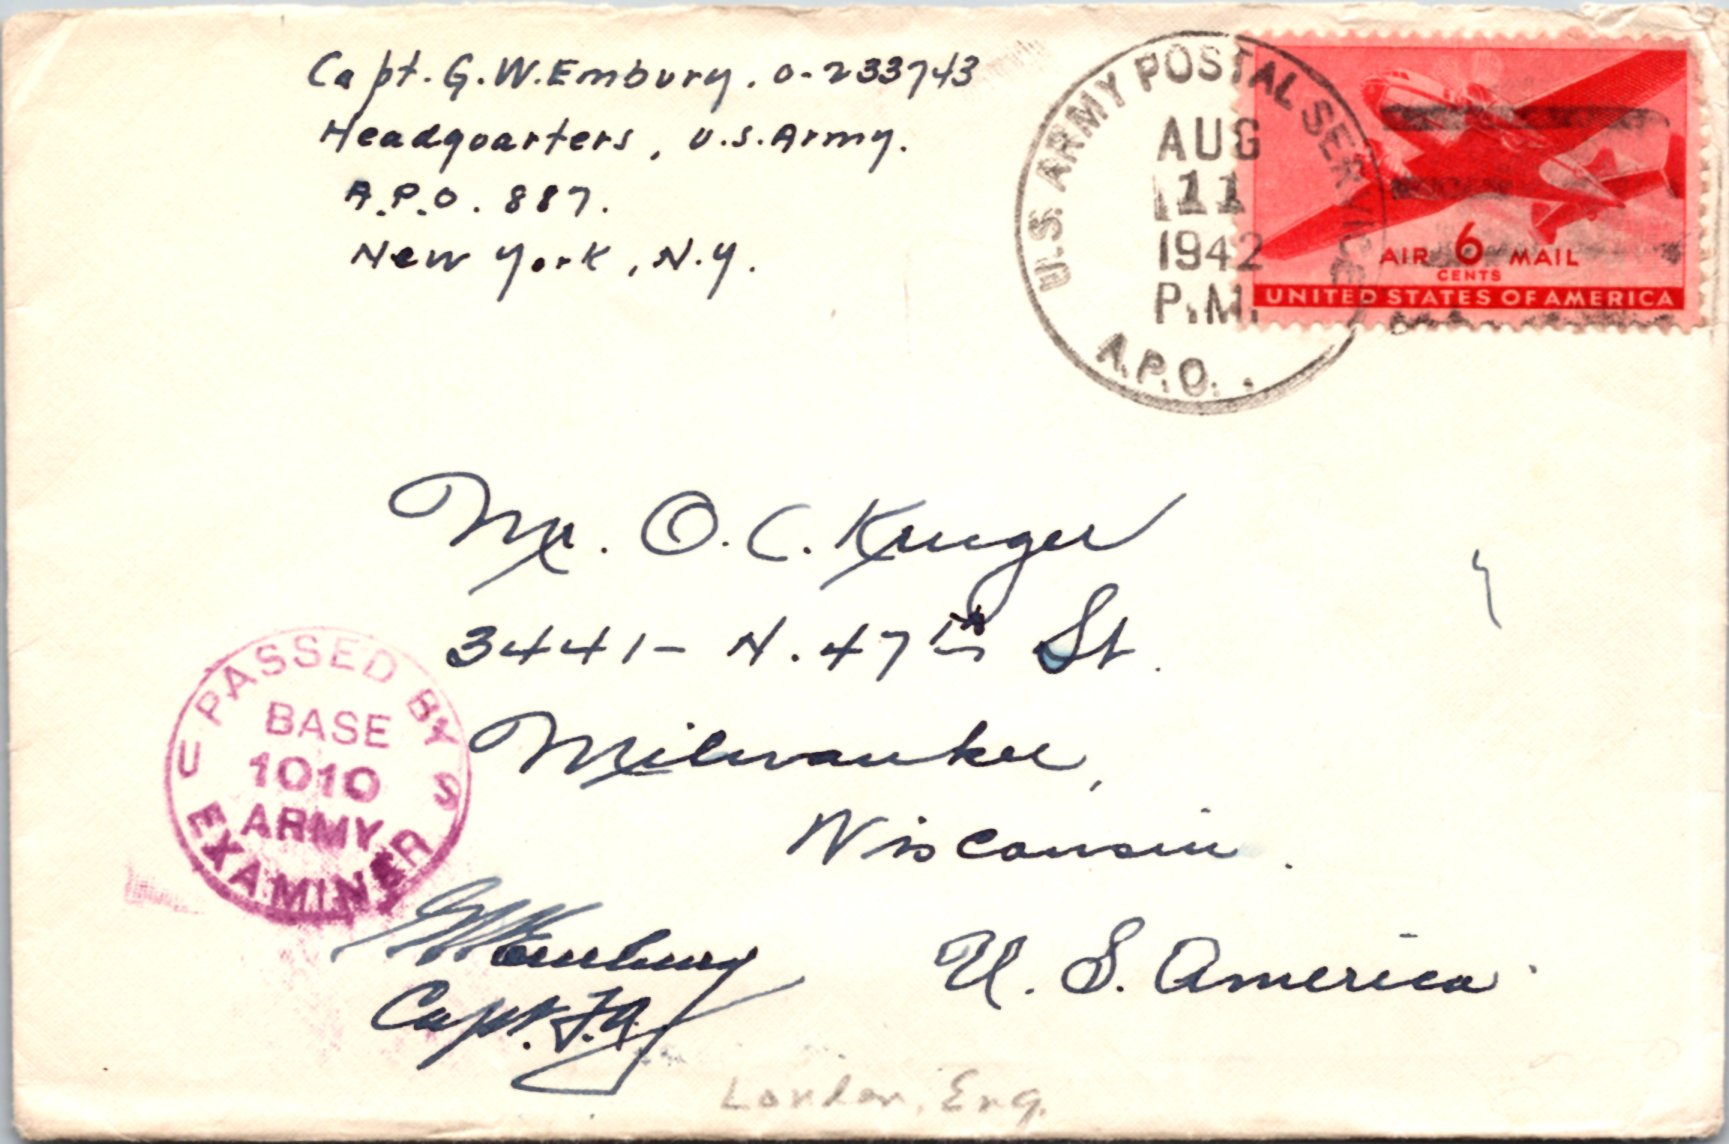 Capt. G. W. Embury. O-233743
Headquarters, U.S. Army.
A.P.O. 887.
New York, N.Y.
U.S. ARMY POSTAL SERVICE
AUG
11
1942
P.M.
A.P.O.
AIR 6 MAIL
CENTS
UNITED STATES OF AMERICA
Mr. O. C. Krueger
3441- N. 47th St.
Milwaukee,
Wisconsin.
U. S. America.
PASSED BY
U S
BASE
1010
ARMY
EXAMINER
GW Embury
Capt. F.A.
London, Eng.